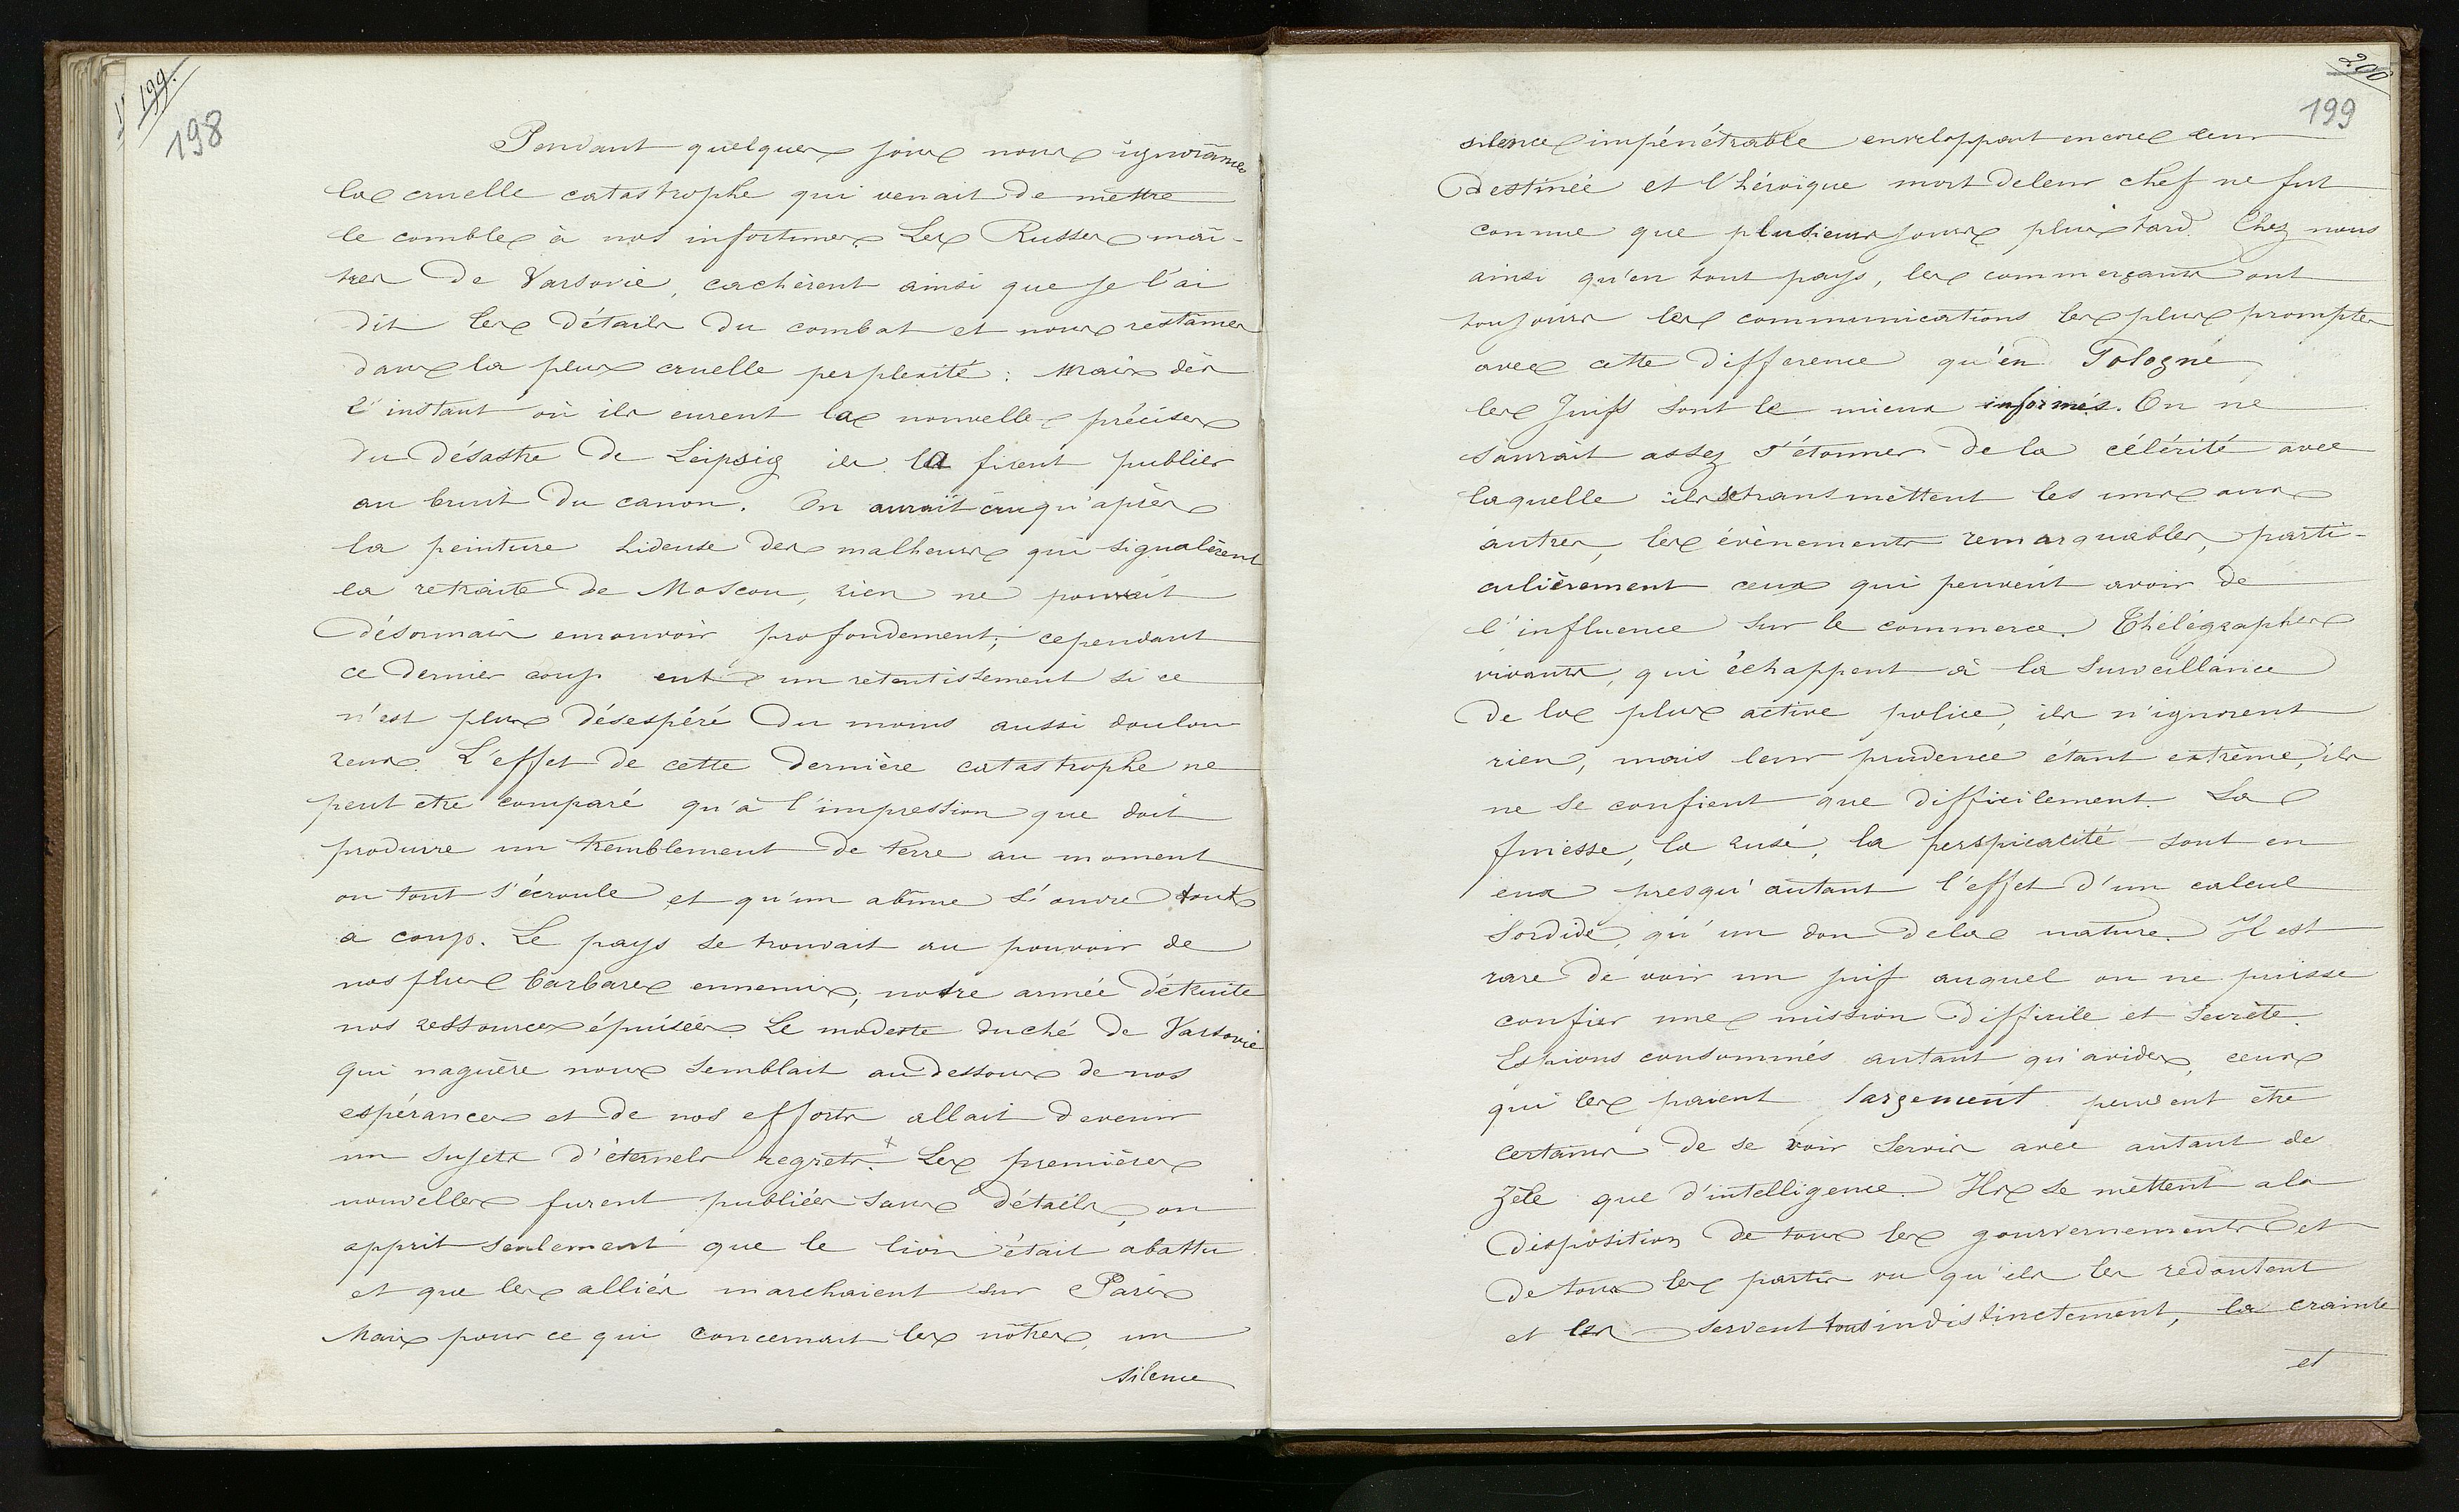 199.
198
Pendant quelques jours nous ignorâmes
la cruelle catastrophe qui venait de mettre
le comble à nos infortunes Les Russes maî-
tres de Varsovie, cachèrent ainsi que je l'ai
dit les détails du combat et nous restâmes
dans la plus cruelle perplexité : Mais dès
l'instant où ils eurent la nouvelle précise
du désastre de Leipsig ils la firent publier
au bruit du canon. On aurait cru qu'après
la peinture hideuse des malheurs qui signalèrent
la retraite de Moscou, rien ne pouvait
désormais emouvoir profondement; cependant
ce dernier coup eut un retentissement si ce
n'est plus désespéré du moins aussi doulou
reux. L'effet de cette dernière catastrophe ne
peut etre comparé qu'à l'impression que doit
produire un tremblement de terre au moment
ou tout s'écroule et qu'un abîme s'ouvre tout
a coup. Le pays se trouvait au pouvoir de
nos plus barbares ennemis; notre armée détruite
nos ressources épuisées. Le modeste duché de Varsovie
qui naguère nous semblait au dessous de nos
espérances et de nos efforts allait devenir
un sujets d'éternels regrets.x Les premières
nouvelles furent publiées sans détails, on
apprit seulement que le lion était abattu
et que les alliés marchaient sur Paris
Mais pour ce qui concernait les nôtres, un
silence
200
199
silence impénétrable enveloppait encore leur
destinée et l'héroique mort de leur chef ne fut
connue que plusieurs jours plus tard. Chez nous
ainsi qu'en tout pays, les commerçants ont
toujours les communications les plus promptes
avec cette difference qu'en Pologne,
les Juifs sont le mieux informés. On ne
saurait assez s'étonner de la célérité avec
laquelle ils se transmettent les uns aux
autres, les évènements remarquables, parti-
culièrement ceux qui peuvent avoir de
l'influence sur le commerce. Thélégraphes
vivants, qui échappent à la surveillance
de la plus active police, ils n'ignorent
rien, mais leur prudence étant extrême, ils
ne se confient que difficilement. La
finesse, la ruse, la perspicacité sont en
eux presqu'autant l'effet d'un calcul
sordide, qu'un don de la nature. Il est
rare de voir un juif auquel on ne puisse
confier une mission difficile et secrète.
Espions consommés autant qu'avides, ceux
qui les paient largement peuvent être
certains de se voir servir avec autant de
zèle que d'intelligence. Ils se mettent a la
disposition de tous les gourvernements et
de tous les partis vu qu'ils les redoutent
et les servent tous indistinctement, la crainte
et